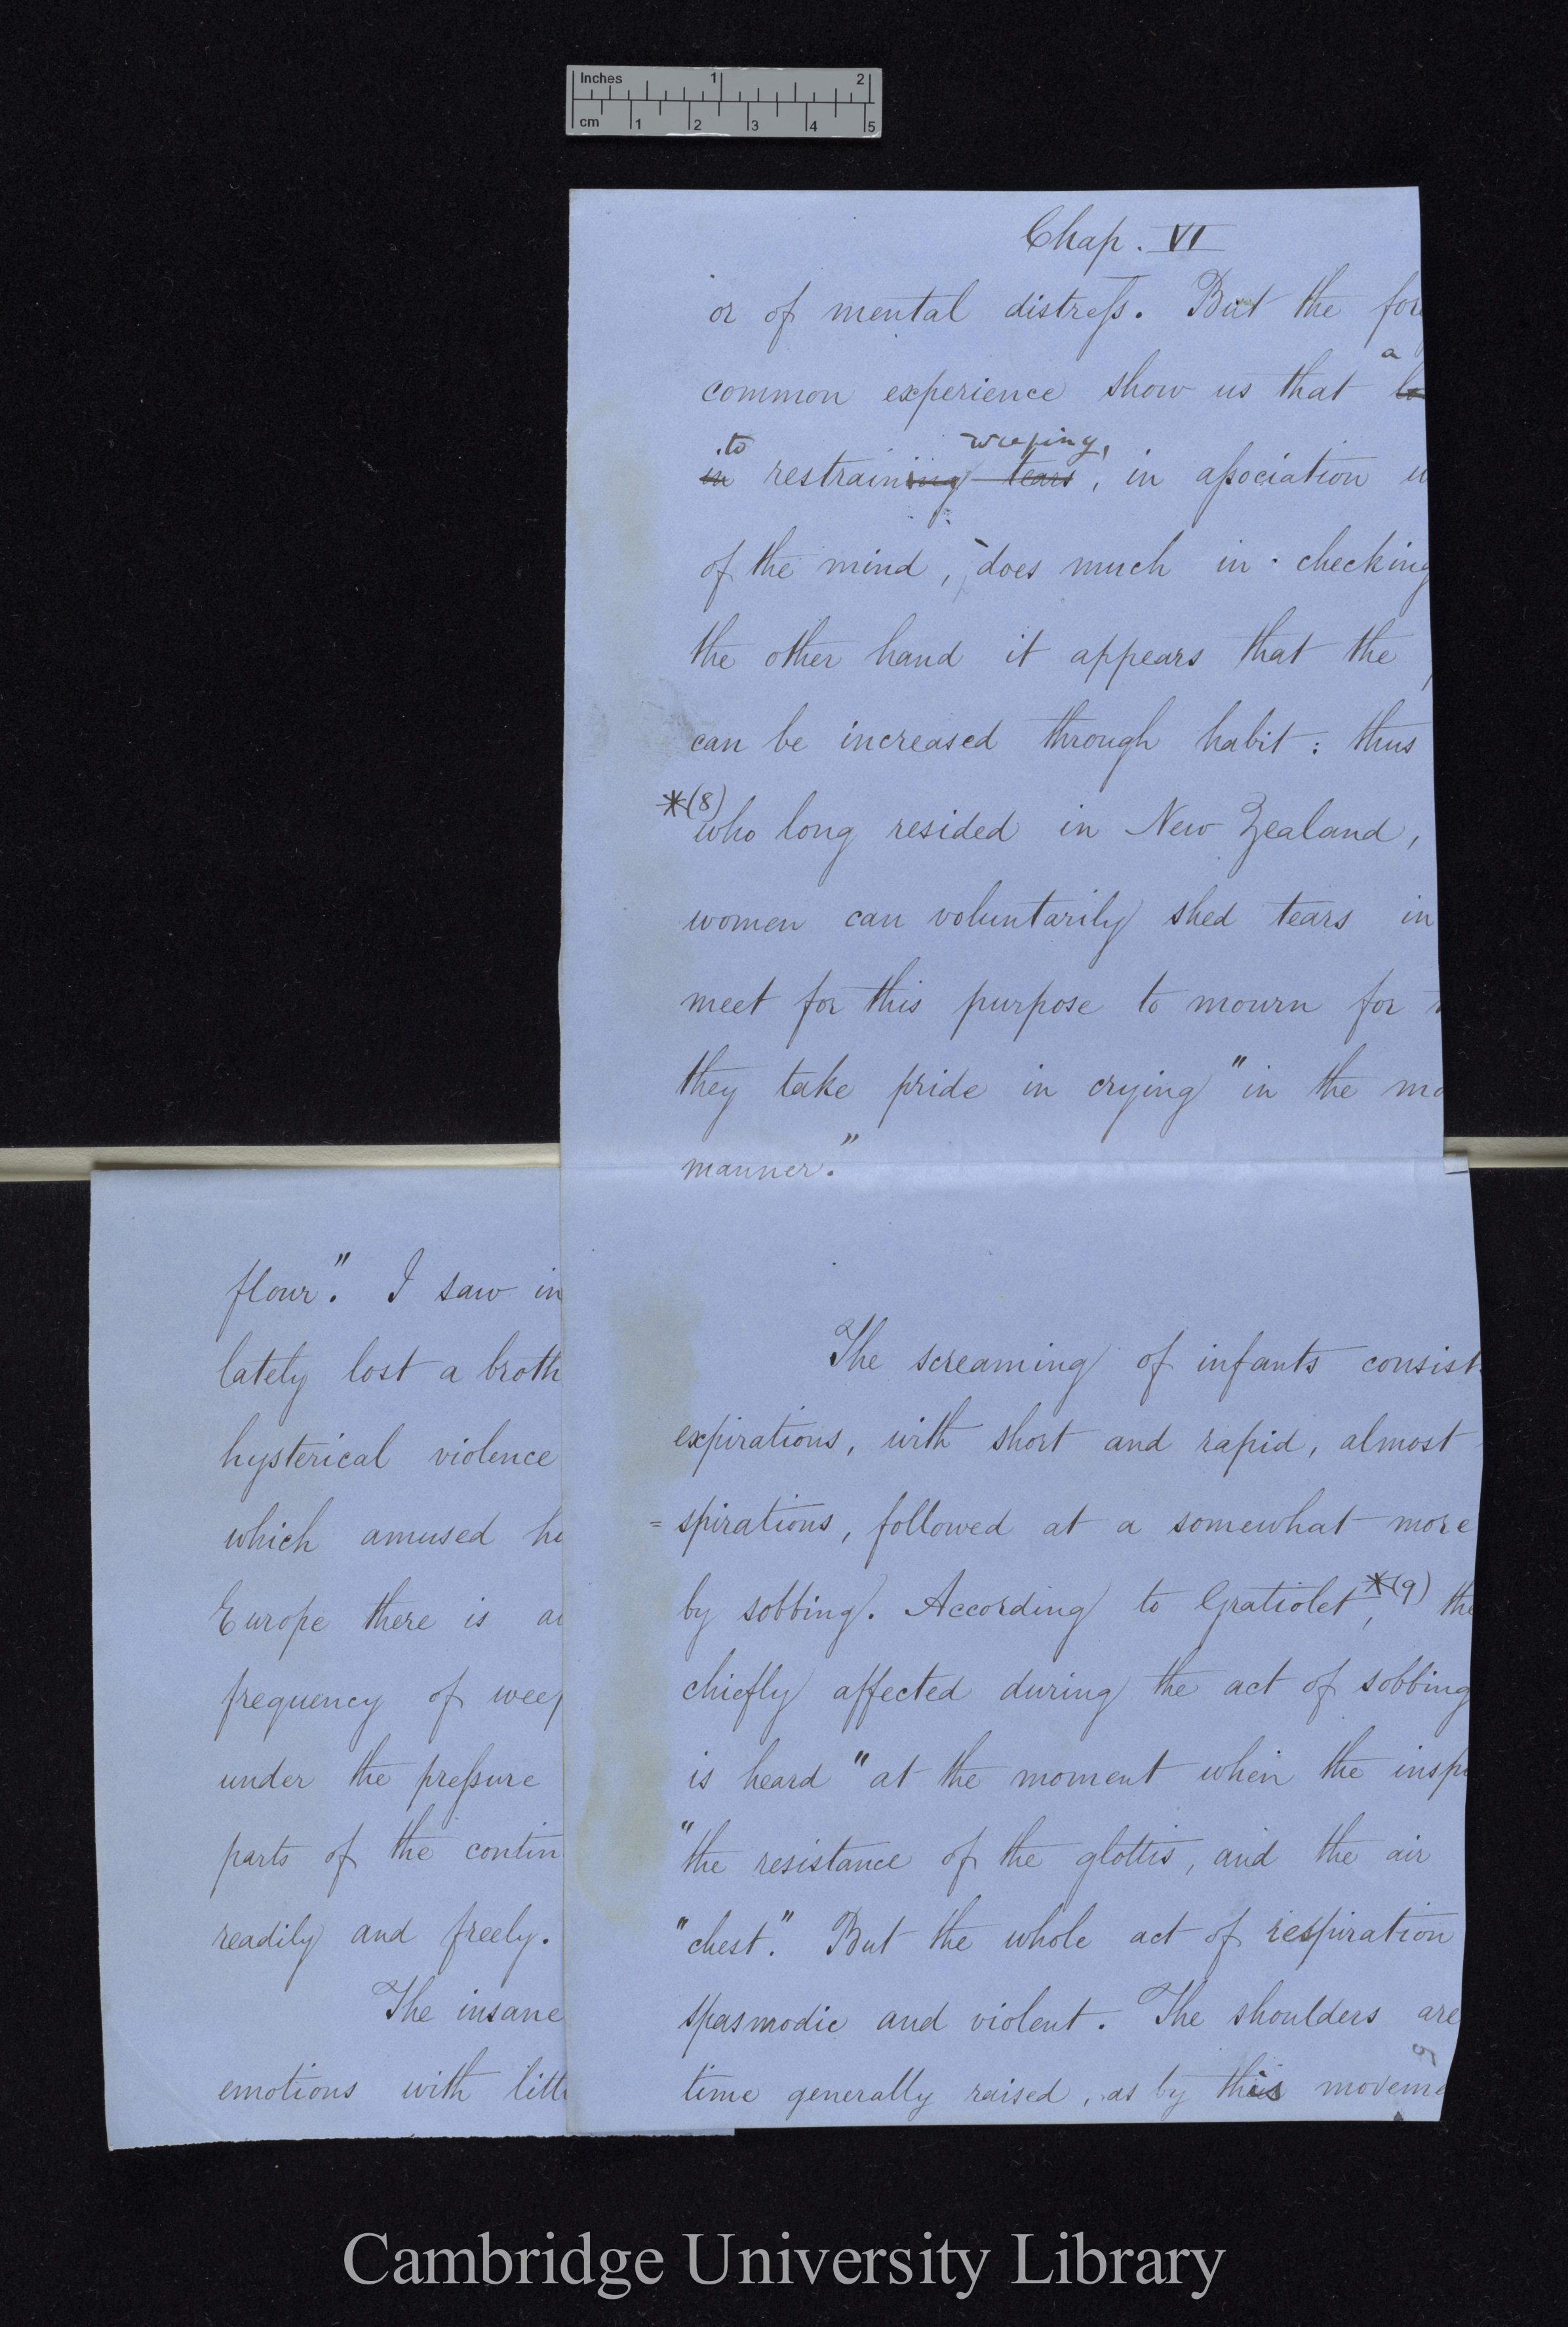 Inches 1 2
cm 1 2 3 4 5
Chap. VI
or of mental distreſs. But the
a
common experience show us that
to weeping,
in restraining tears, in aſsociation
of the mind, does much in checking
the other hand it appears that the
can be increased through habit: thus
*(8)
who long resided in New Zealand,
women can voluntarily shed tears in
meet for this purpose to mourn for
they take pride in crying "in the
manner."
The screaming of infants consist
expirations, with short and rapid, almost
= spirations, followed at a somewhat more
by sobbing. According to Gratiolet,*(9) the
chiefly affected during the act of sobbing
is heard "at the moment when the insp
"the resistance of the glottis, and the air
"chest." But the whole act of respiration
spasmodic and violent. The shoulders are
time generally raised, as by this movem
flour." I saw in
lately lost a broth
hysterical violence
which amused
Europe there is
frequency of weep
under the preſsure
parts of the contin
readily and freely.
The insane
emotions with litt
Cambridge University Library